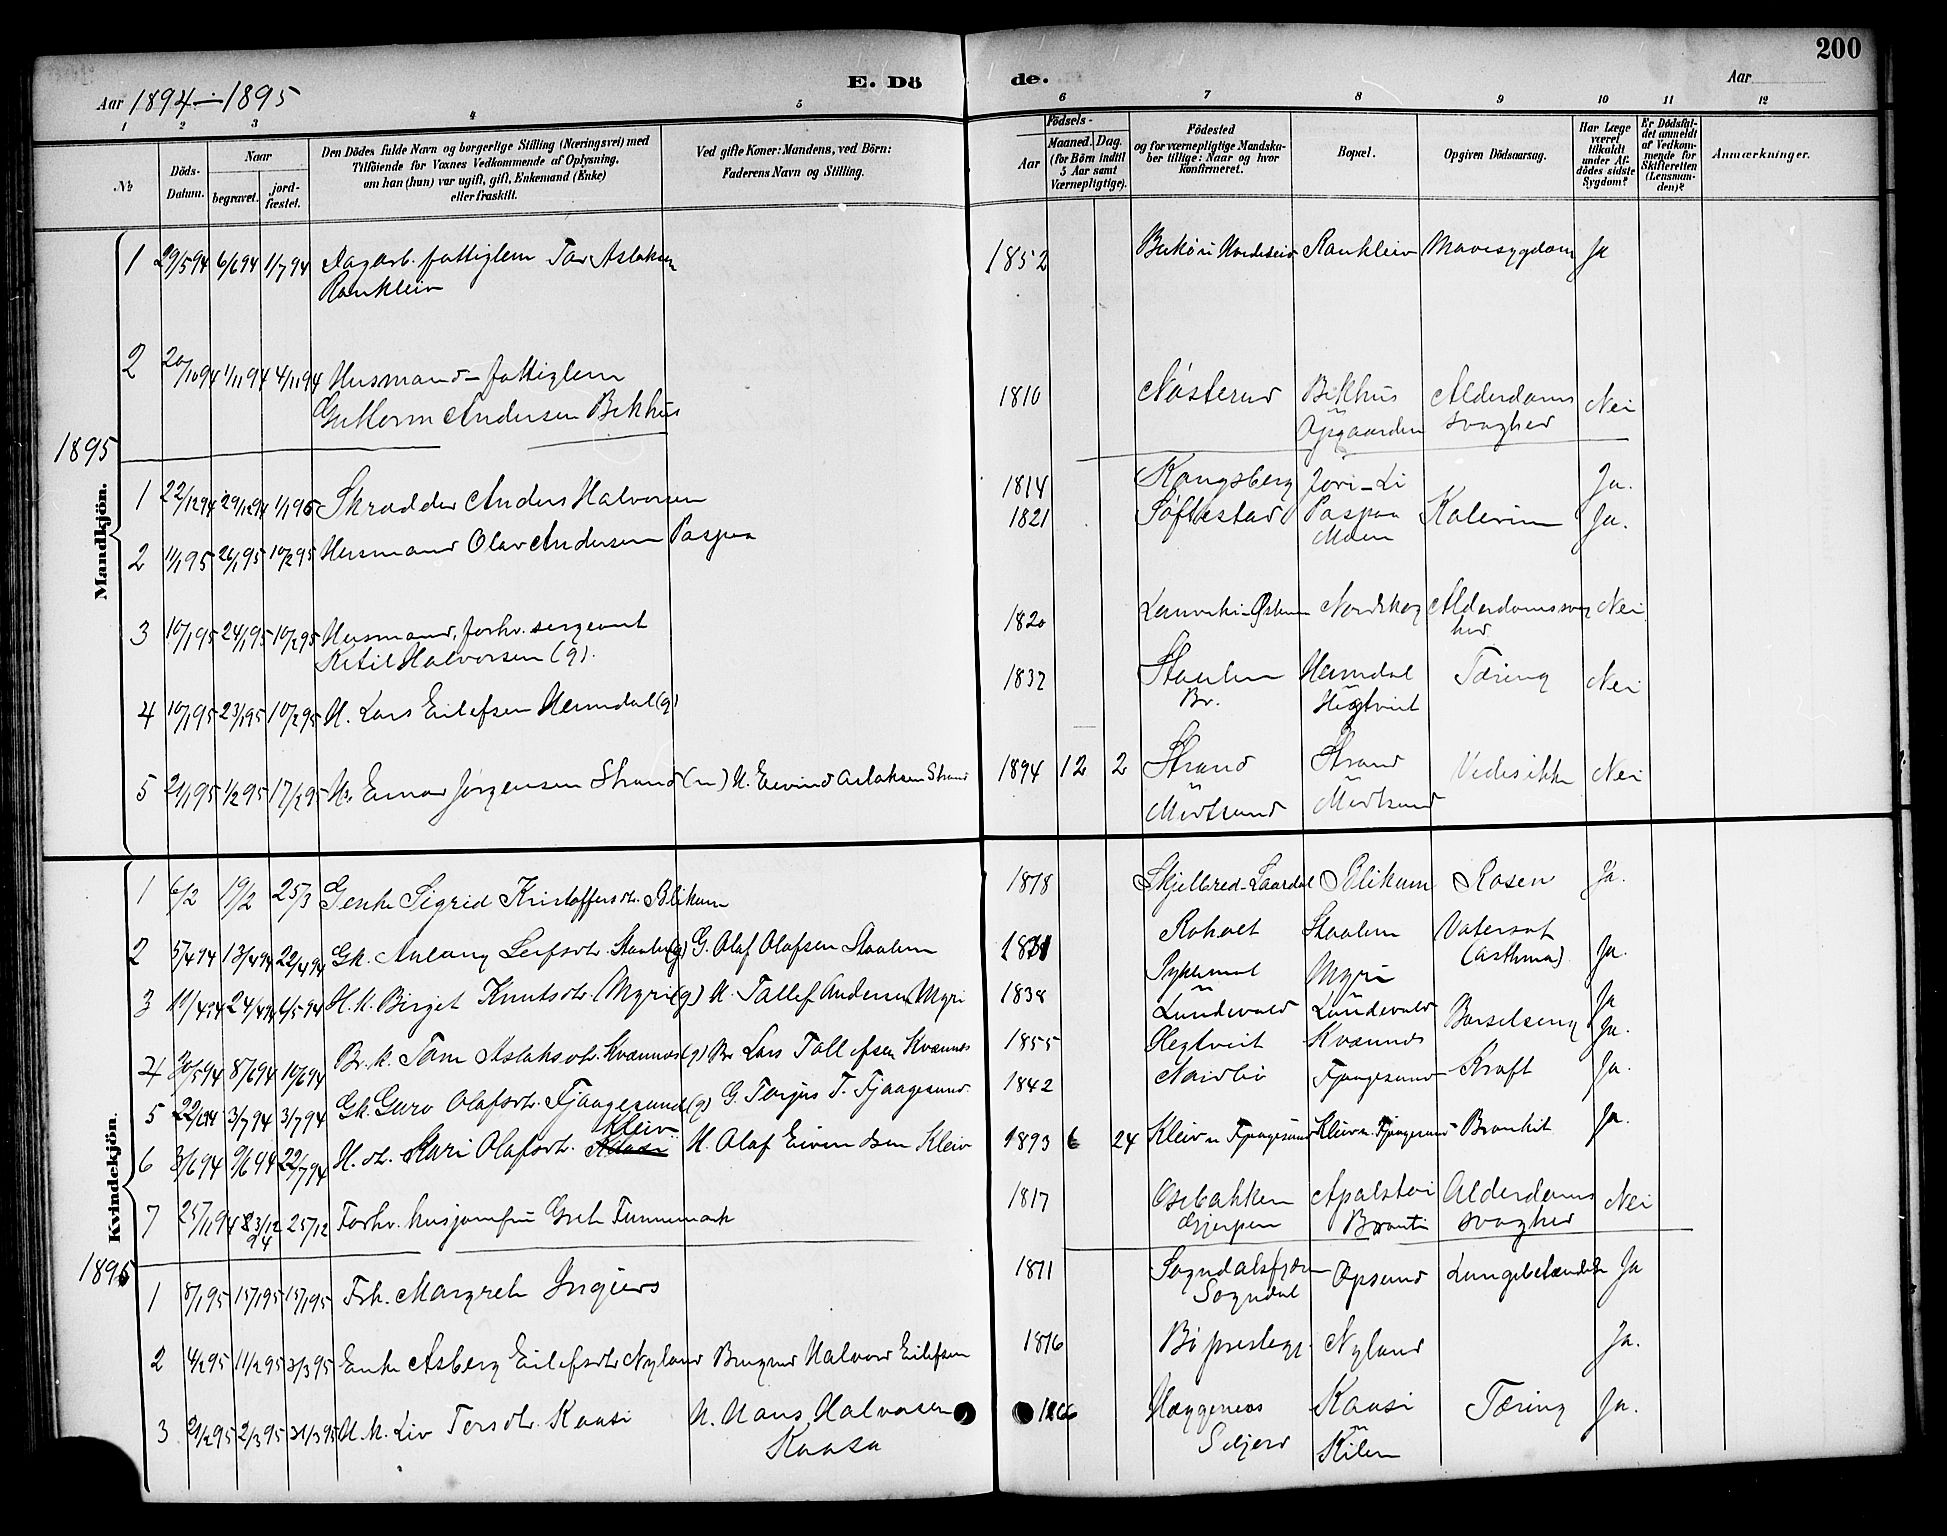 200
Aar 1894–1895
E. Dö de.
Aar
1 2 3 4 5 6 7 8 9 10 11 12
№
Döds-Datum.
Naar
begravet.
jord-fæstet.
Den Dödes fulde Navn og borgerlige Stilling (Næringsvei) med
Tilföiende for Voxnes Vedkommende af Oplysning,
om han (hun) var ugift, gift, Enkemand (Enke)
eller fraskilt.
Ved gifte Koner: Mandens, ved Börn:
Faderens Navn og Stilling.
Födsels-
Aar
Maaned. Dag.
(for Börn indtil
5 Aar samt
Værnepligtige).
Födested
og for værnepligtige Mandska-
ber tillige: Naar og hvor
konfirmeret.
Bopæl.
Opgiven Dödsaarsag.
Har Læge
været
tilkaldt
under Af-
dödes sidste
Sygdom?
Er Dödsfal-
det anmeldt
af Vedkom-
mende for
Skifteretten
(Lensman-
den)?
Anmærkninger.
Mandkjön.
1 29/5 94 6/6 94 1/7 94 Dagarb. fattiglem Tor Aslaksen 1852 Rankleiv Mavesygdom Ja
Rankleiv
2 20/10 94 1/11 94 4/11 94 Husmand – fattiglem 1810 Nøsterud Bekhus Alderdoms Nei
Guttorm Andersen Bekhus Opgaarden svaghed
1895
1 22/12 94 29/12 94 1/1 95 Skrædder Anders Halvorsen 1814 Kongsberg Jori-Li Ja.
2 11/1 95 26/1 95 10/2 95 Husmand Olav Andersen Paspaa 1821 Søftestad Paspaa Kolerine Ja.
Moen
3 10/1 95 24/1 95 10/2 95 Husmand, forhv. sergeant 1820 Nordskog Alderdomssvag Nei
Ketil Halvorsen (g). hed
4 10/1 95 23/1 95 10/2 95 H. Lars Eilefsen Heimdal (g) 1832 Staulen Heimdal Tæring Nei
Br. Hegtveit
5 29/1 95 1/2 95 17/2 95 Hs. Einar Jørgensen Strand (n) H. Eivind Aslaksen Strand 1894 12 2 Strand Strand Vides ikke Nei
n n
Midtsund Midtsund
Kvindekjön.
1 6/2 19/2 25/3 Enke Sigrid Kristoffersdtr. Blikum 1818 Skjelbred-Laardal Blikum Rosen Ja.
2 5/4 94 13/4 94 22/4 94 Gk. Anlaug Leifsdtr. Staulen (g) G. Olaf Olafsen Staulen 1831 Roholt Staulen Vatersot Ja.
(asthma)
3 11/4 94 24/4 94 6/5 94 H. k. Birgit Knutsdtr. Myri (g) H. Tallef Andersen Myri 1838 Myri Ja
Lundevald Lundevald
4 30/5 94 8/6 94 10/6 94 Br. k. Tone Aslaksdtr. Kvannes (g) Br Lars Tallefsen Kvannes 1855 Hegtveit Kvannes Barselseng Ja.
5 22/6 94 3/7 94 3/7 94 Gk. Guro Olafsdtr. Fjaagesund (g) G. Torjus T. Fjaagesund. 1842 Nairbø Fjaagesund Kræft Ja.
6 3/6 94 9/6 94 22/7 94 H. dt. Kari Olafsdtr. Kleiv H. Olaf Eivindsen Kleiv 1893 6 24 Kleiv n. Fjaagesund Kleiv n. Fjaagesund Bronkit Ja.
7 25/11 94 3/12 94 25/12 Forhv. husjomfru Grete Tennemark 1817 Osebakken Apalstøi Alderdoms Nei
Gjerpen Brauti svaghed
1895
1 8/1 95 15/1 95 15/1 95 Frk. Margrete Ingiers 1871 Sogndalsfjæren Opsund Lungebetændelse Ja
Sogndal
2 4/2 95 11/2 95 3/3 95 Enke Asberg Eilefsdtr. Nyland Brugmd Halvor Eilefsen 1816 Bø prestegj. Nyland Ja.
3 21/2 95 2/3 95 31/3 95 H. k. Liv Torsdtr. Kaasi H. Hans Halvorsen 1866 Haggenes Kaasi Tæring Ja.
Kaasa Seljord Kilen